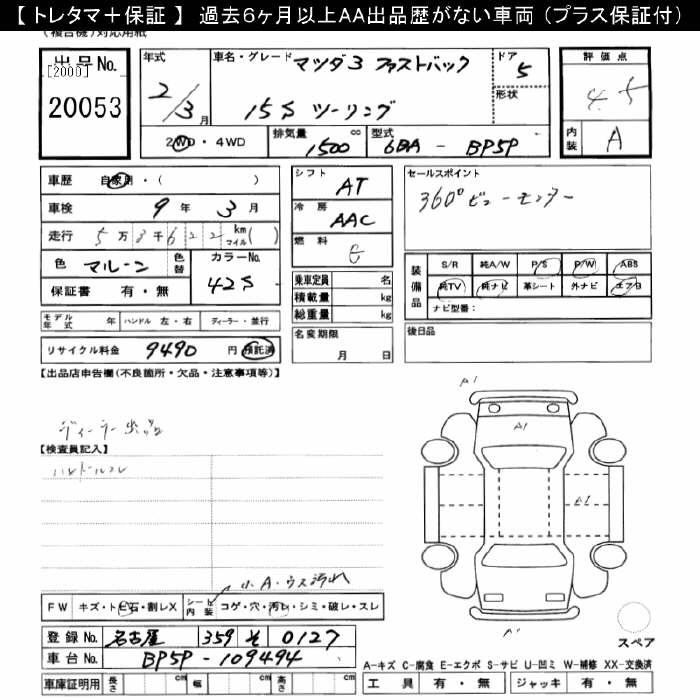 【トレタマ＋保証】 過去６ヶ月以上ＡＡ出品歴がない車両（プラス保証付）
(複合機)対応用紙
出品No.
[2000]
20053
年式
2/3月
車名・グレード マツダ3 ファストバック
15S ツーリング
ドア 5
形状
2WD・4WD
排気量 1500 cc
型式 6BA - BP5P
評価点
4.5
内装 A
車歴 自家用・( )
車検 9年 3月
走行 5万3千622 km マイル( )
色 マルーン 色替
カラーNo. 42S
保証書 有・無
モデル年式 年 ハンドル 左・右 ディーラー・並行
リサイクル料金 9490 円 預託済
シフト AT
冷房 AAC
燃料 G
乗車定員 名
積載量 kg
総重量 kg
名変期限
月 日
セールスポイント
360°ビューモニター
装備品
S/R 純A/W P/S P/W ABS
純TV 純ナビ 革シート 外ナビ エアB
ナビ型番：
後日品
【出品店申告欄(不良箇所・欠品・注意事項等)】
ディーラー出品
【検査員記入】
ハンドルスレ
小A・ウス汚れ
FW キズ・トビ石・割レX
シート内装 コゲ・穴・汚レ・シミ・破レ・スレ
登録No. 名古屋 359 そ 0127
車台No. BP5P-109494
車庫証明用 長さ cm 幅 cm 高さ cm
A1
A1
A1
スペア
A-キズ C-腐食 E-エクボ S-サビ U-凹ミ W-補修 XX-交換済
工具 有・無 ジャッキ 有・無